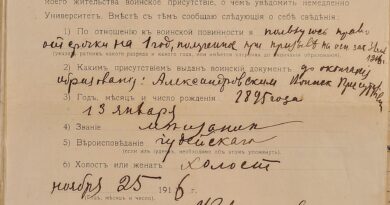 моего жительства воинское присутствіе, о чемъ увѣдомить немедленно
Университетъ. Вмѣстѣ съ тѣмъ сообщаю слѣдующія о себѣ свѣдѣнія:
1) По отношенію къ воинской повинности я пользуюсь право
отсрочки на 1 годъ, получена при призывѣ
2) Какимъ присутствіемъ выданъ воинскій документъ до окончанія
образованія: Александровским Воинск Присутств
3) Годъ, мѣсяцъ и число рожденія 1895 года
13 января
4) Званіе мѣщанин
5) Вѣроисповѣданіе Іудейскаго
6) Холостъ или женатъ холост
ноября 25 1916 г.
(Годъ, мѣсяцъ и число).